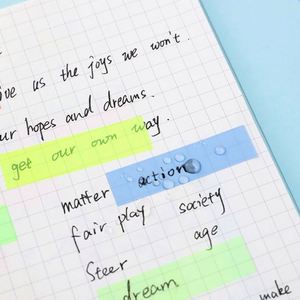 give us the joys we won't.
our hopes and dreams.
get our own way.
matter action
fair play society
Steer age
dream make